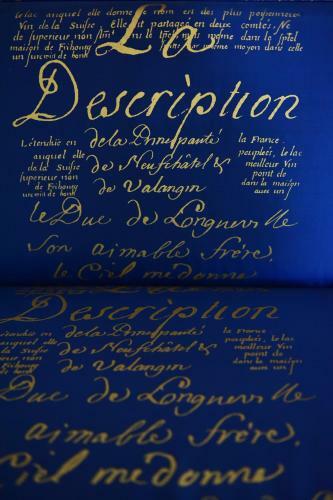 Le auquel elle donne le nom en des plus poissonneux
Vin de la Suisse Elle est partagée en deux comtés, Ne
de superieur non
maison de Fribourg par même moyen dans celle
un surcroit de bonh
La
Description
L'étendüe en
auquel elle
de la Suisse
superieur non
de Fribourg
en un's
de la Principauté
de Neufchâtel &
de Valangin
la France.
peuplées, le lac
meilleur Vin
point de
dans la maison
avec un'
le Duc de Longueville
Son aimable frère,
le Ciel me donne
Description
L'étendüe en
auquel elle
de la Suisse
superieur non
de Fribourg
de la Principauté
de Neufchâtel &
de Valangin
la France.
peuplées, le lac
meilleur Vin
point de
dans la maison
Duc de Longueville
aimable frère,
Ciel me donne